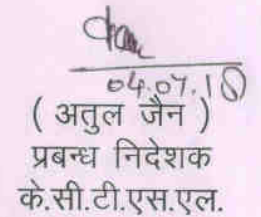 04.07.18
( अतुल जैन )
प्रबन्ध निदेशक
के.सी.टी.एस.एल.